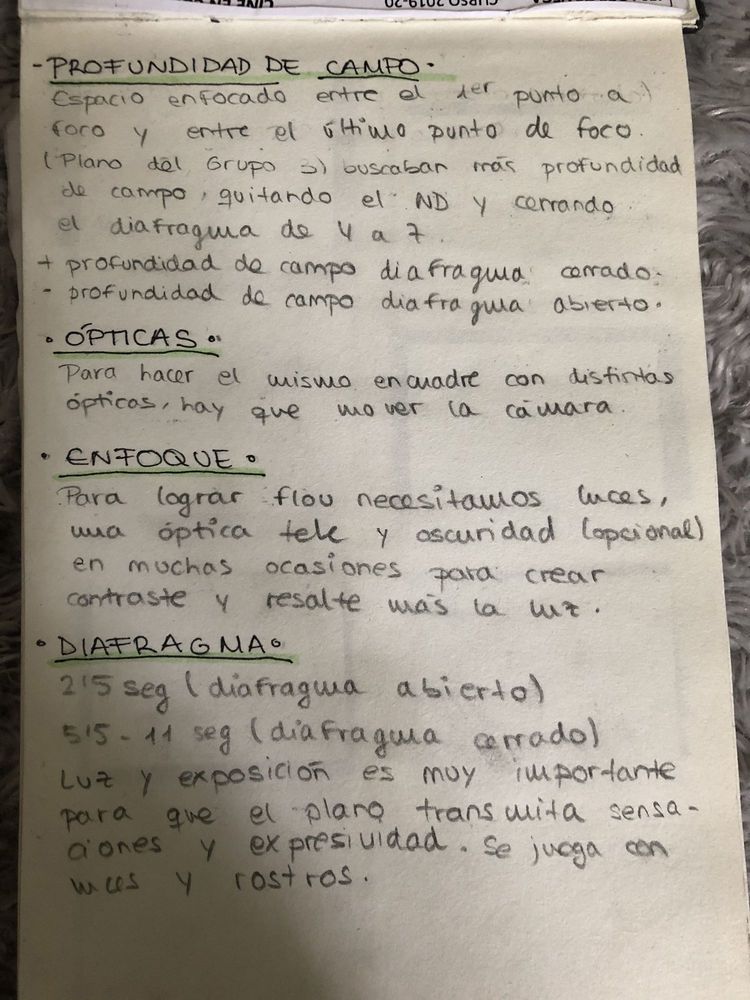 CURSO 2019-20
- PROFUNDIDAD DE CAMPO.
Espacio enfocado entre el 1er punto a
foco y entre el último punto de foco.
(Plano del Grupo 3) buscaban más profundidad
de campo, quitando el ND y cerrando
el diafragma de 4 a 7.
+ profundidad de campo diafragma cerrado.
- profundidad de campo diafragma abierto.
• ÓPTICAS •
Para hacer el mismo encuadre con distintas
ópticas, hay que mover la cámara.
• ENFOQUE •
Para lograr flou necesitamos luces,
una óptica tele y oscuridad (opcional)
en muchas ocasiones para crear
contraste y resalte más la luz.
• DIAFRAGMA •
2'5 seg (diafragma abierto)
5'5 - 11 seg (diafragma cerrado)
Luz y exposición es muy importante
para que el plano transmita sensa-
ciones y expresividad. Se juega con
luces y rostros.